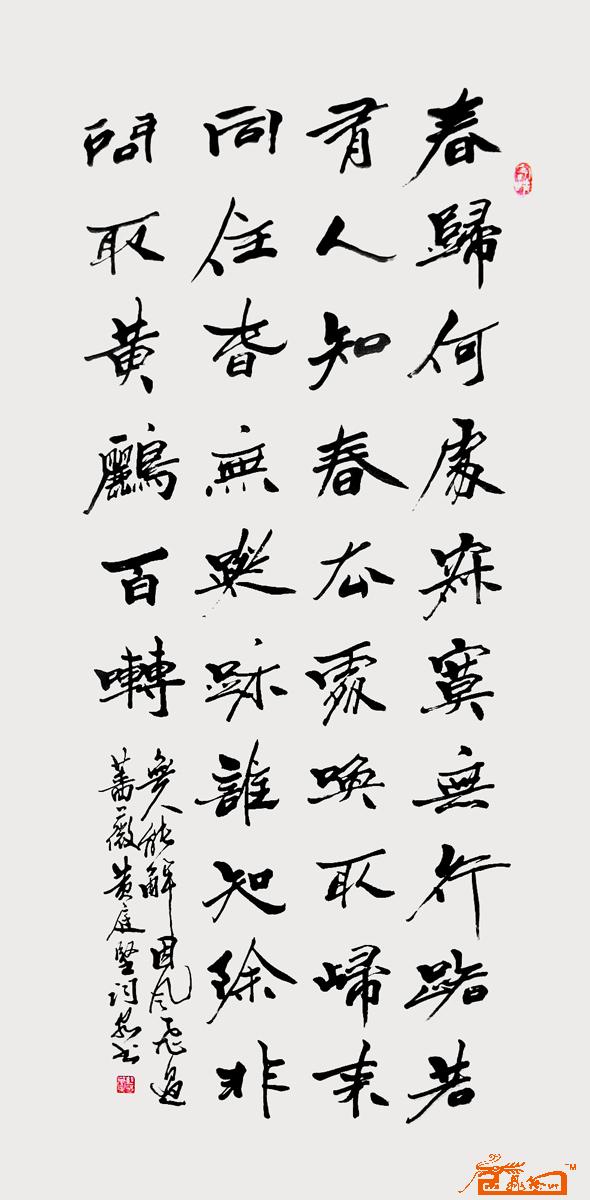 春歸何處寂寞無行路若
有人知春去處喚取歸來
同住春無蹤跡誰知除非
問取黃鸝百囀
無人能解因風飛過
薔薇黄庭堅詞書